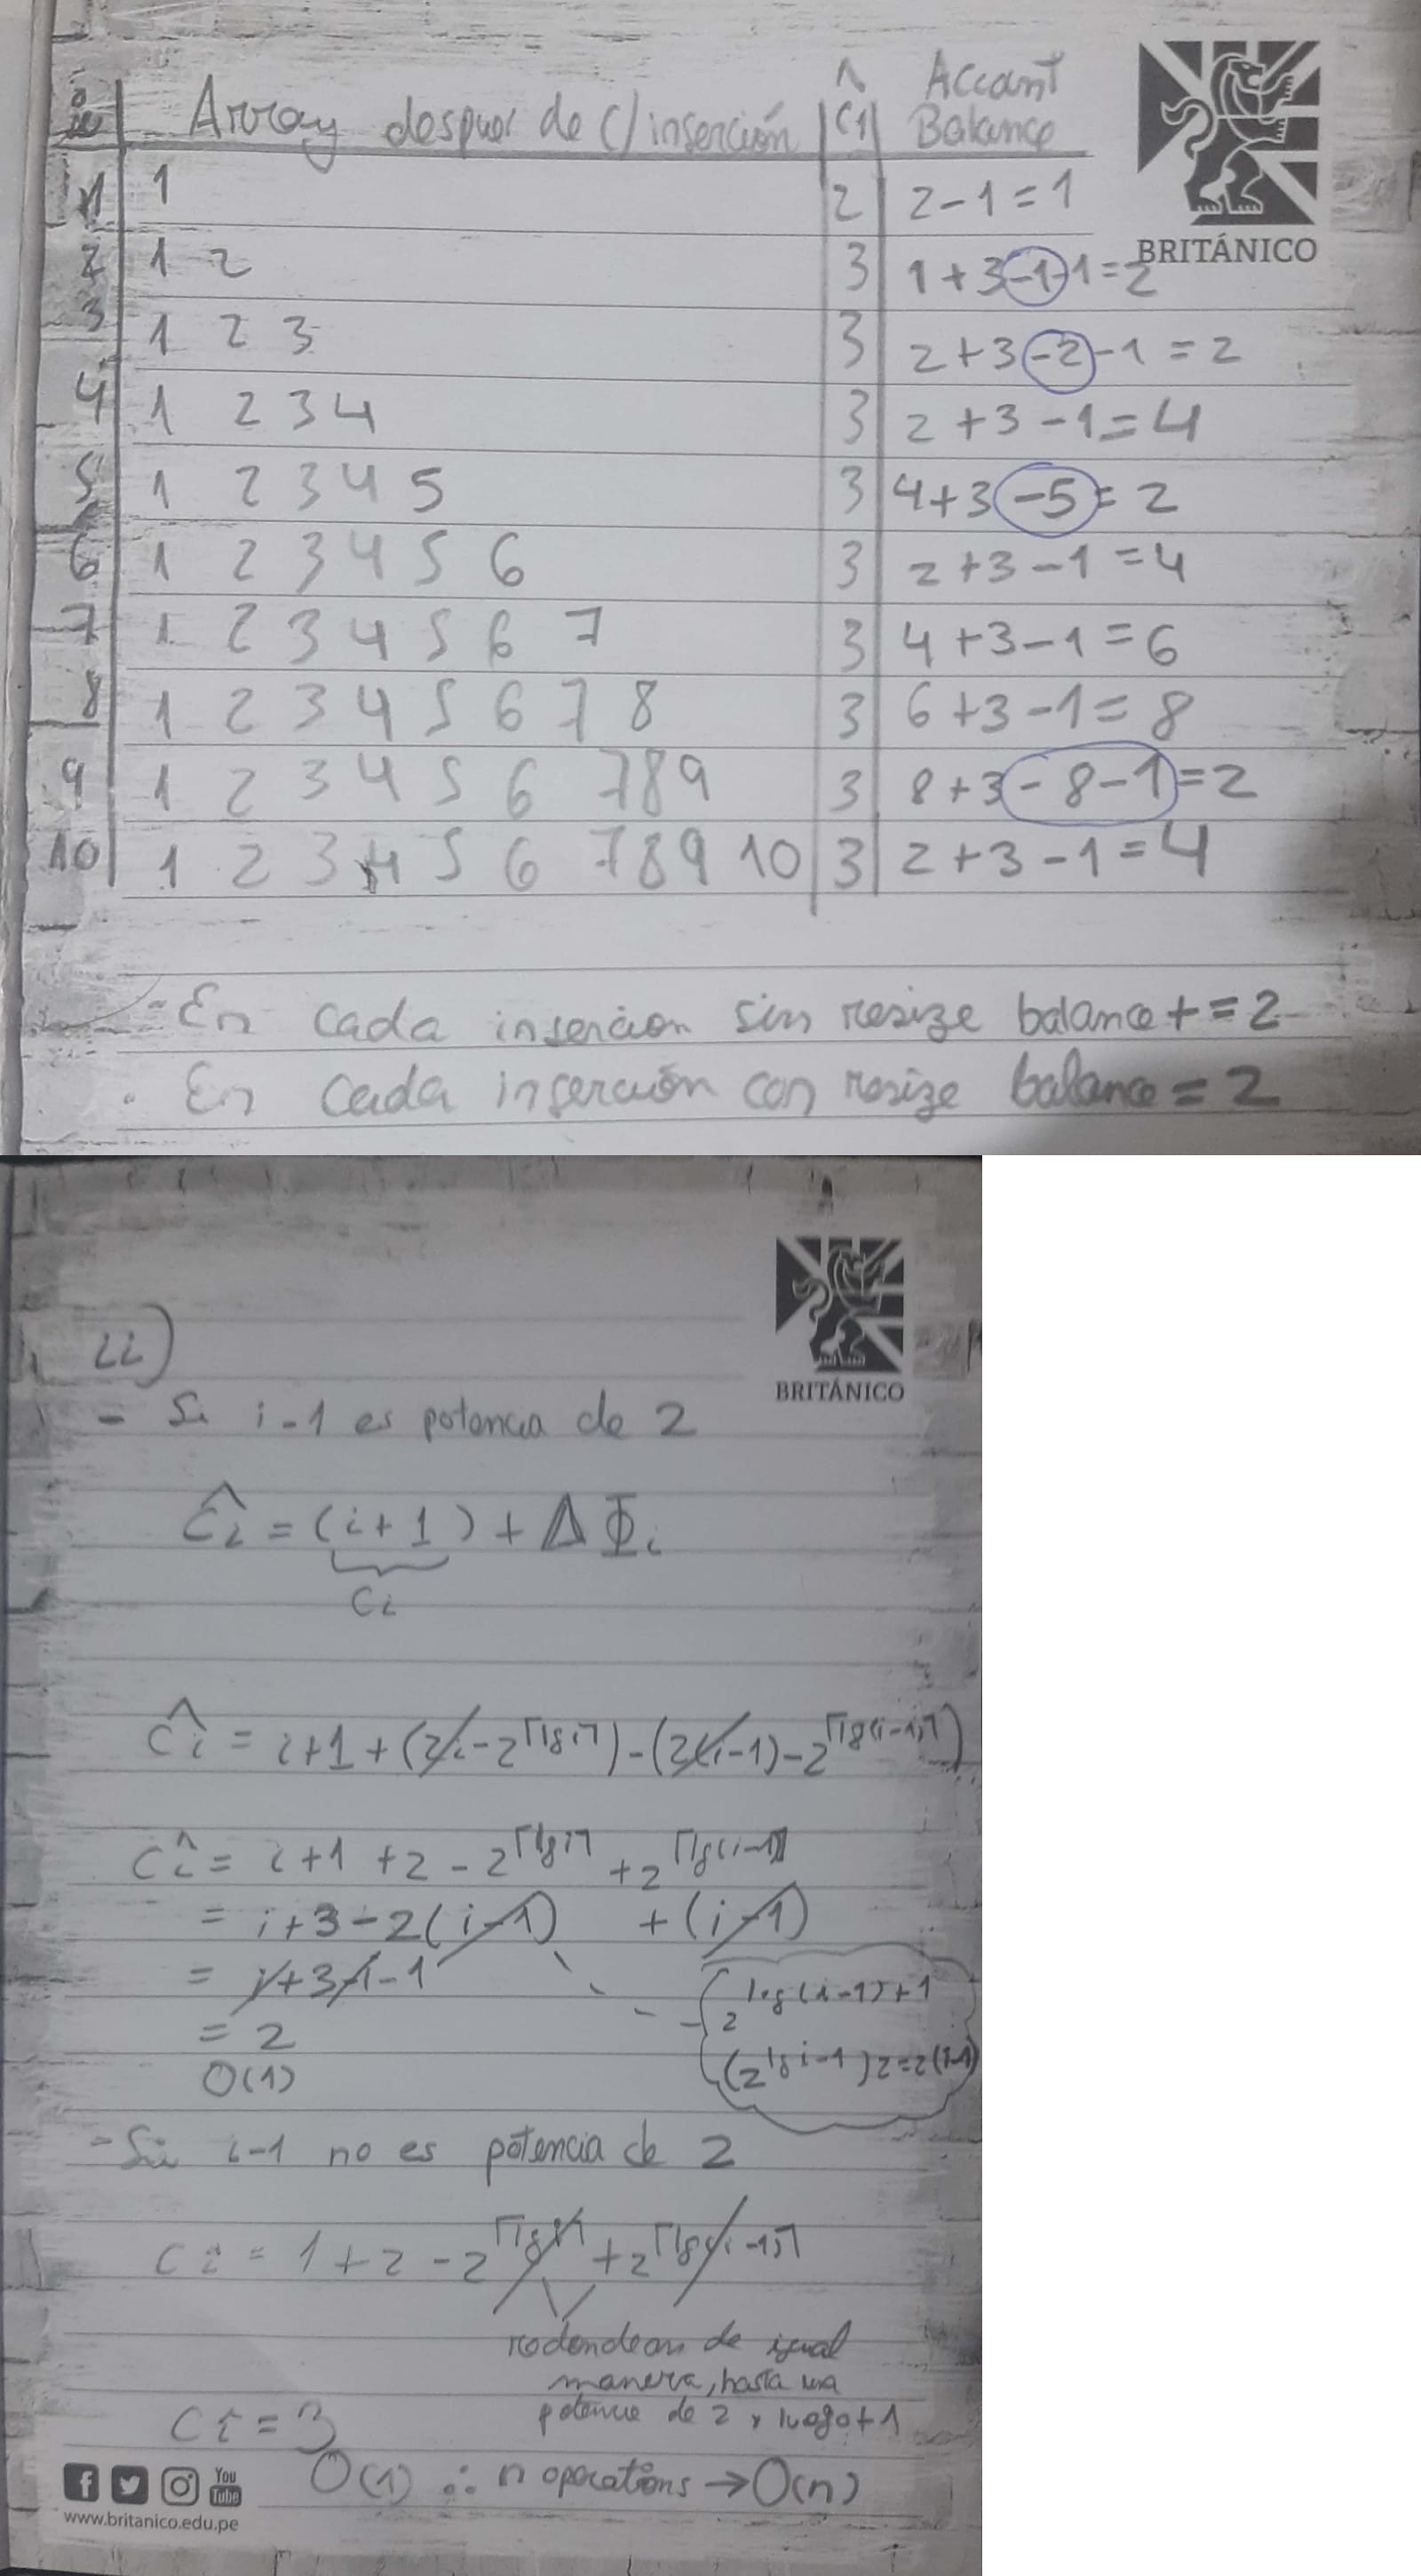 i | Array despues de c/ inserción | ĉi | Accont Balance
BRITÁNICO
1 | 1 | 2 | 2-1=1
2 | 1 2 | 3 | 1+3-1-1=2
3 | 1 2 3 | 3 | 2+3-2-1=2
4 | 1 2 3 4 | 3 | 2+3-1=4
5 | 1 2 3 4 5 | 3 | 4+3-5=2
6 | 1 2 3 4 5 6 | 3 | 2+3-1=4
7 | 1 2 3 4 5 6 7 | 3 | 4+3-1=6
8 | 1 2 3 4 5 6 7 8 | 3 | 6+3-1=8
9 | 1 2 3 4 5 6 7 8 9 | 3 | 8+3-8-1=2
10 | 1 2 3 4 5 6 7 8 9 10 | 3 | 2+3-1=4
- En cada insercion sin resize balance+=2
. En cada inserción con resize balance=2
BRITÁNICO
ii)
- Si i-1 es potencia de 2
ĉi = (i+1) + ΔΦi
ci
ĉi = i+1+(2i-2^⌈lg i⌉)-(2(i-1)-2^⌈lg(i-1)⌉)
ĉi = i+1+2-2^⌈lg i⌉+2^⌈lg(i-1)⌉
= i+3-2(i-1) +(i-1)
= i+3-i-1
2^log(i-1)+1
= 2
(2^lg i-1)2=2(i-1)
O(1)
- Si i-1 no es potencia de 2
ĉi = 1+2-2^⌈lg i⌉+2^⌈lg(i-1)⌉
redondean de igual
manera, hasta una
potencia de 2 y luego+1
ĉi = 3
O(1) ∴ n operations → O(n)
You
Tube
www.britanico.edu.pe